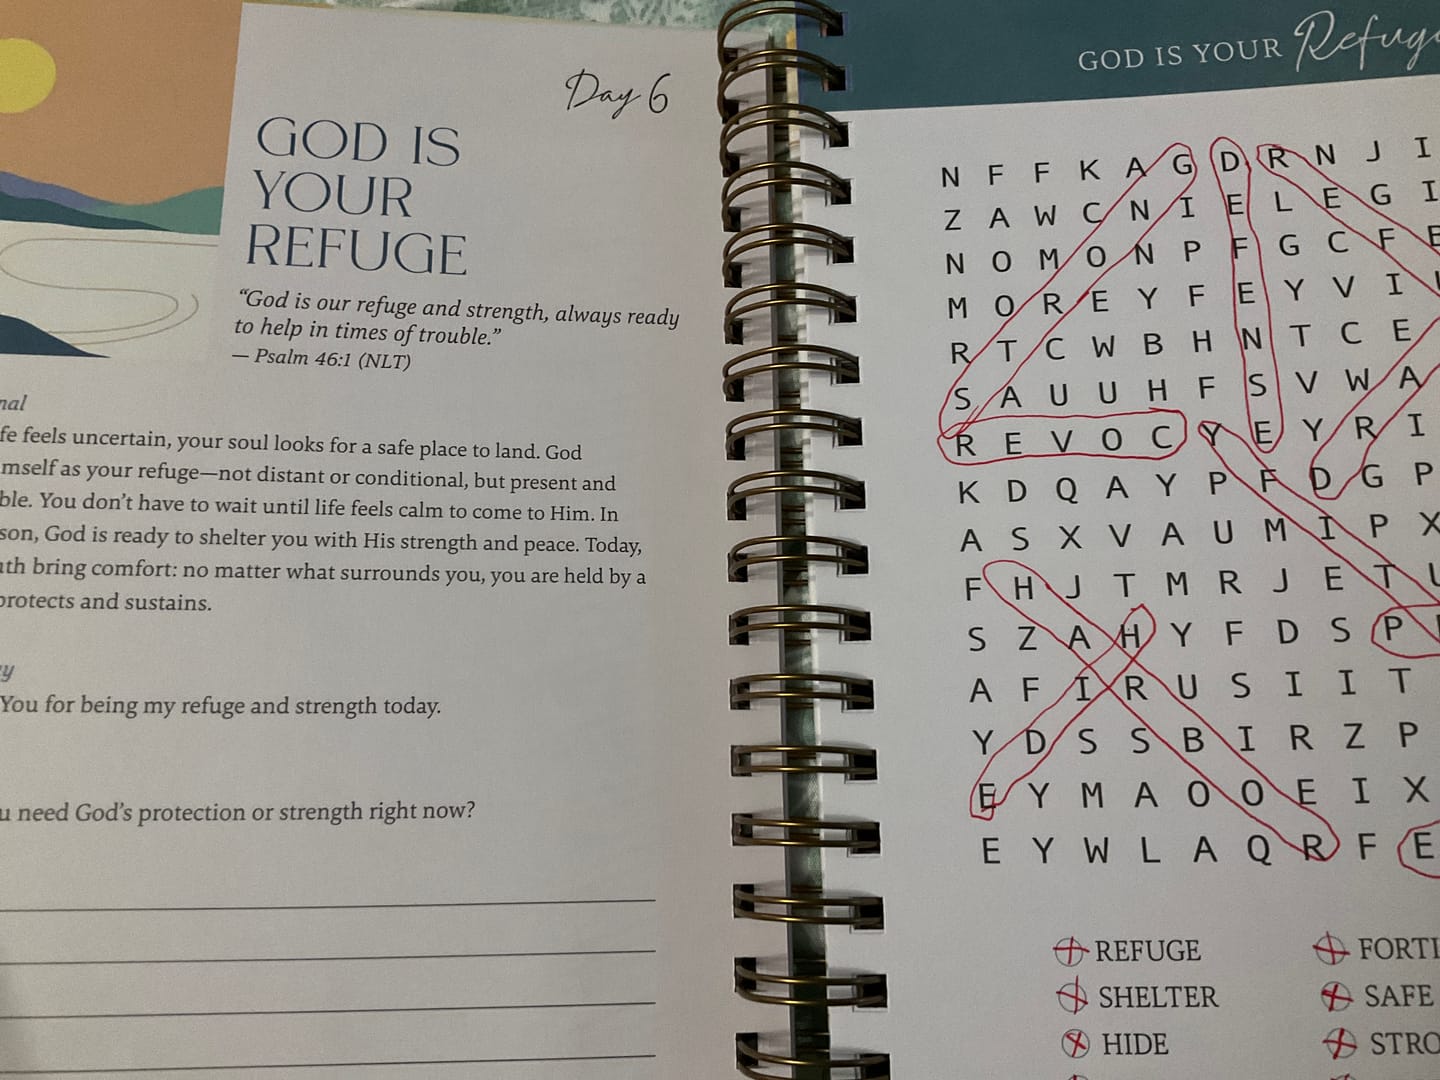 Day 6
GOD IS
YOUR
REFUGE
“God is our refuge and strength, always ready
to help in times of trouble.”
— Psalm 46:1 (NLT)
feels uncertain, your soul looks for a safe place to land. God
as your refuge—not distant or conditional, but present and
You don’t have to wait until life feels calm to come to Him. In
God is ready to shelter you with His strength and peace. Today,
bring comfort: no matter what surrounds you, you are held by a
protects and sustains.
You for being my refuge and strength today.
need God’s protection or strength right now?
GOD IS YOUR Refuge
N F F K A G D R N J I
Z A W C N I E L E G I
N O M O N P F G C F E
M O R E Y F E Y V I
R T C W B H N T C E
S A U U H F S V W A
R E V O C Y E Y R I
K D Q A Y P F D G P
A S X V A U M I P X
F H J T M R J E T
S Z A H Y F D S P
A F I R U S I I T
Y D S S B I R Z P
E Y M A O O E I X
E Y W L A Q R F E
REFUGE
FORTI
SHELTER
SAFE
HIDE
STRO